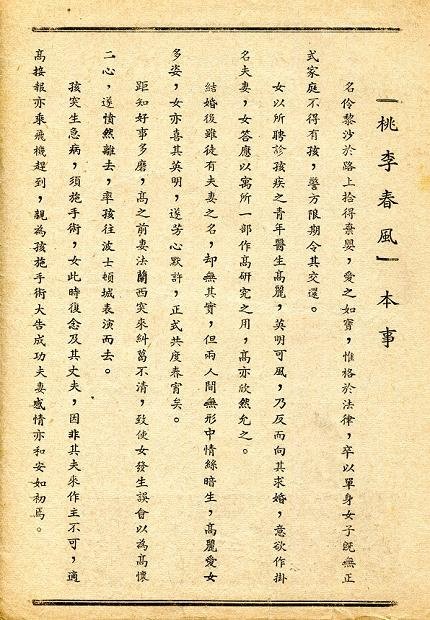 「桃李春風」本事
名伶黎沙於路上拾得棄嬰，愛之如寳，惟格於法律，卒以單身女子旣無正
式家庭不得有孩，警方限期令其交還。
女以所聘診孩疾之青年醫生高麗，英明可風，乃反而向其求婚，意欲作掛
名夫妻，女答應以寓所一部作高研究之用，高亦欣然允之。
結婚後雖徒有夫妻之名，却無其實，但兩人間無形中情絲暗生，高麗愛女
多姿，女亦喜其英明，遂芳心默許，正式共度春宵矣。
距知好事多磨，高之前妻法蘭西突來糾葛不清，致使女發生誤會以為高懷
二心，遂憤然離去，率孩往波士頓城表演而去。
孩突生急病，須施手術，女此時復念及其丈夫，因非其夫來作主不可，適
高接報亦乘飛機趕到，親為孩施手術大告成功夫妻感情亦和安如初焉。